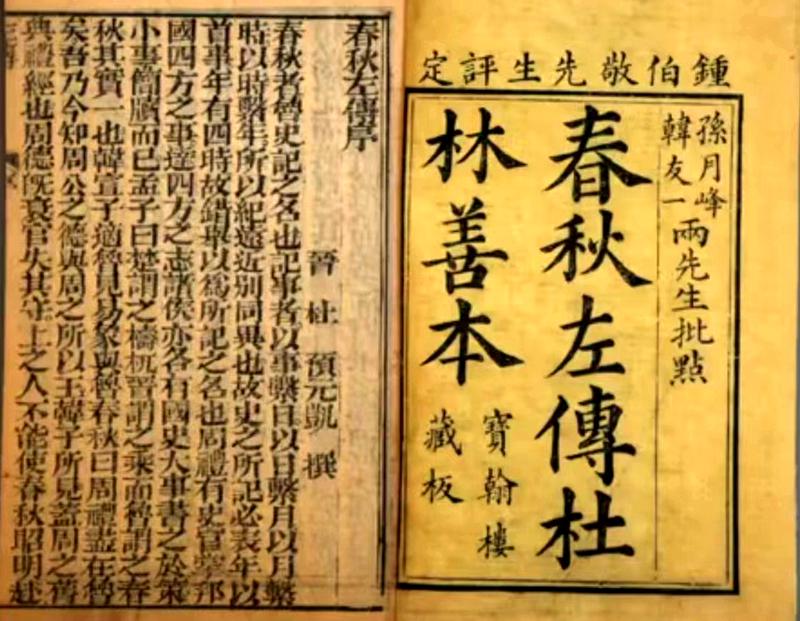 鍾伯敬先生評定
孫月峰
韓友一
兩先生批點
春秋左傳杜
林善本
寶翰樓
藏板
春秋左傳序
晉 杜 預元凱 撰
春秋者魯史記之名也記事者以事繫日以日繫月以月繫
時以時繫年所以紀遠近別同異也故史之所記必表年以
首事年有四時故錯舉以爲所記之名也周禮有史官掌邦
國四方之事達四方之志諸侯亦各有國史大事書之於策
小事簡牘而已孟子曰楚謂之檮杌晉謂之乘而魯謂之春
秋其實一也韓宣子適魯見易象與魯春秋曰周禮盡在魯
矣吾乃今知周公之德與周之所以王韓子所見蓋周之舊
典禮經也周德既衰官失其守上之人不能使春秋昭明赴